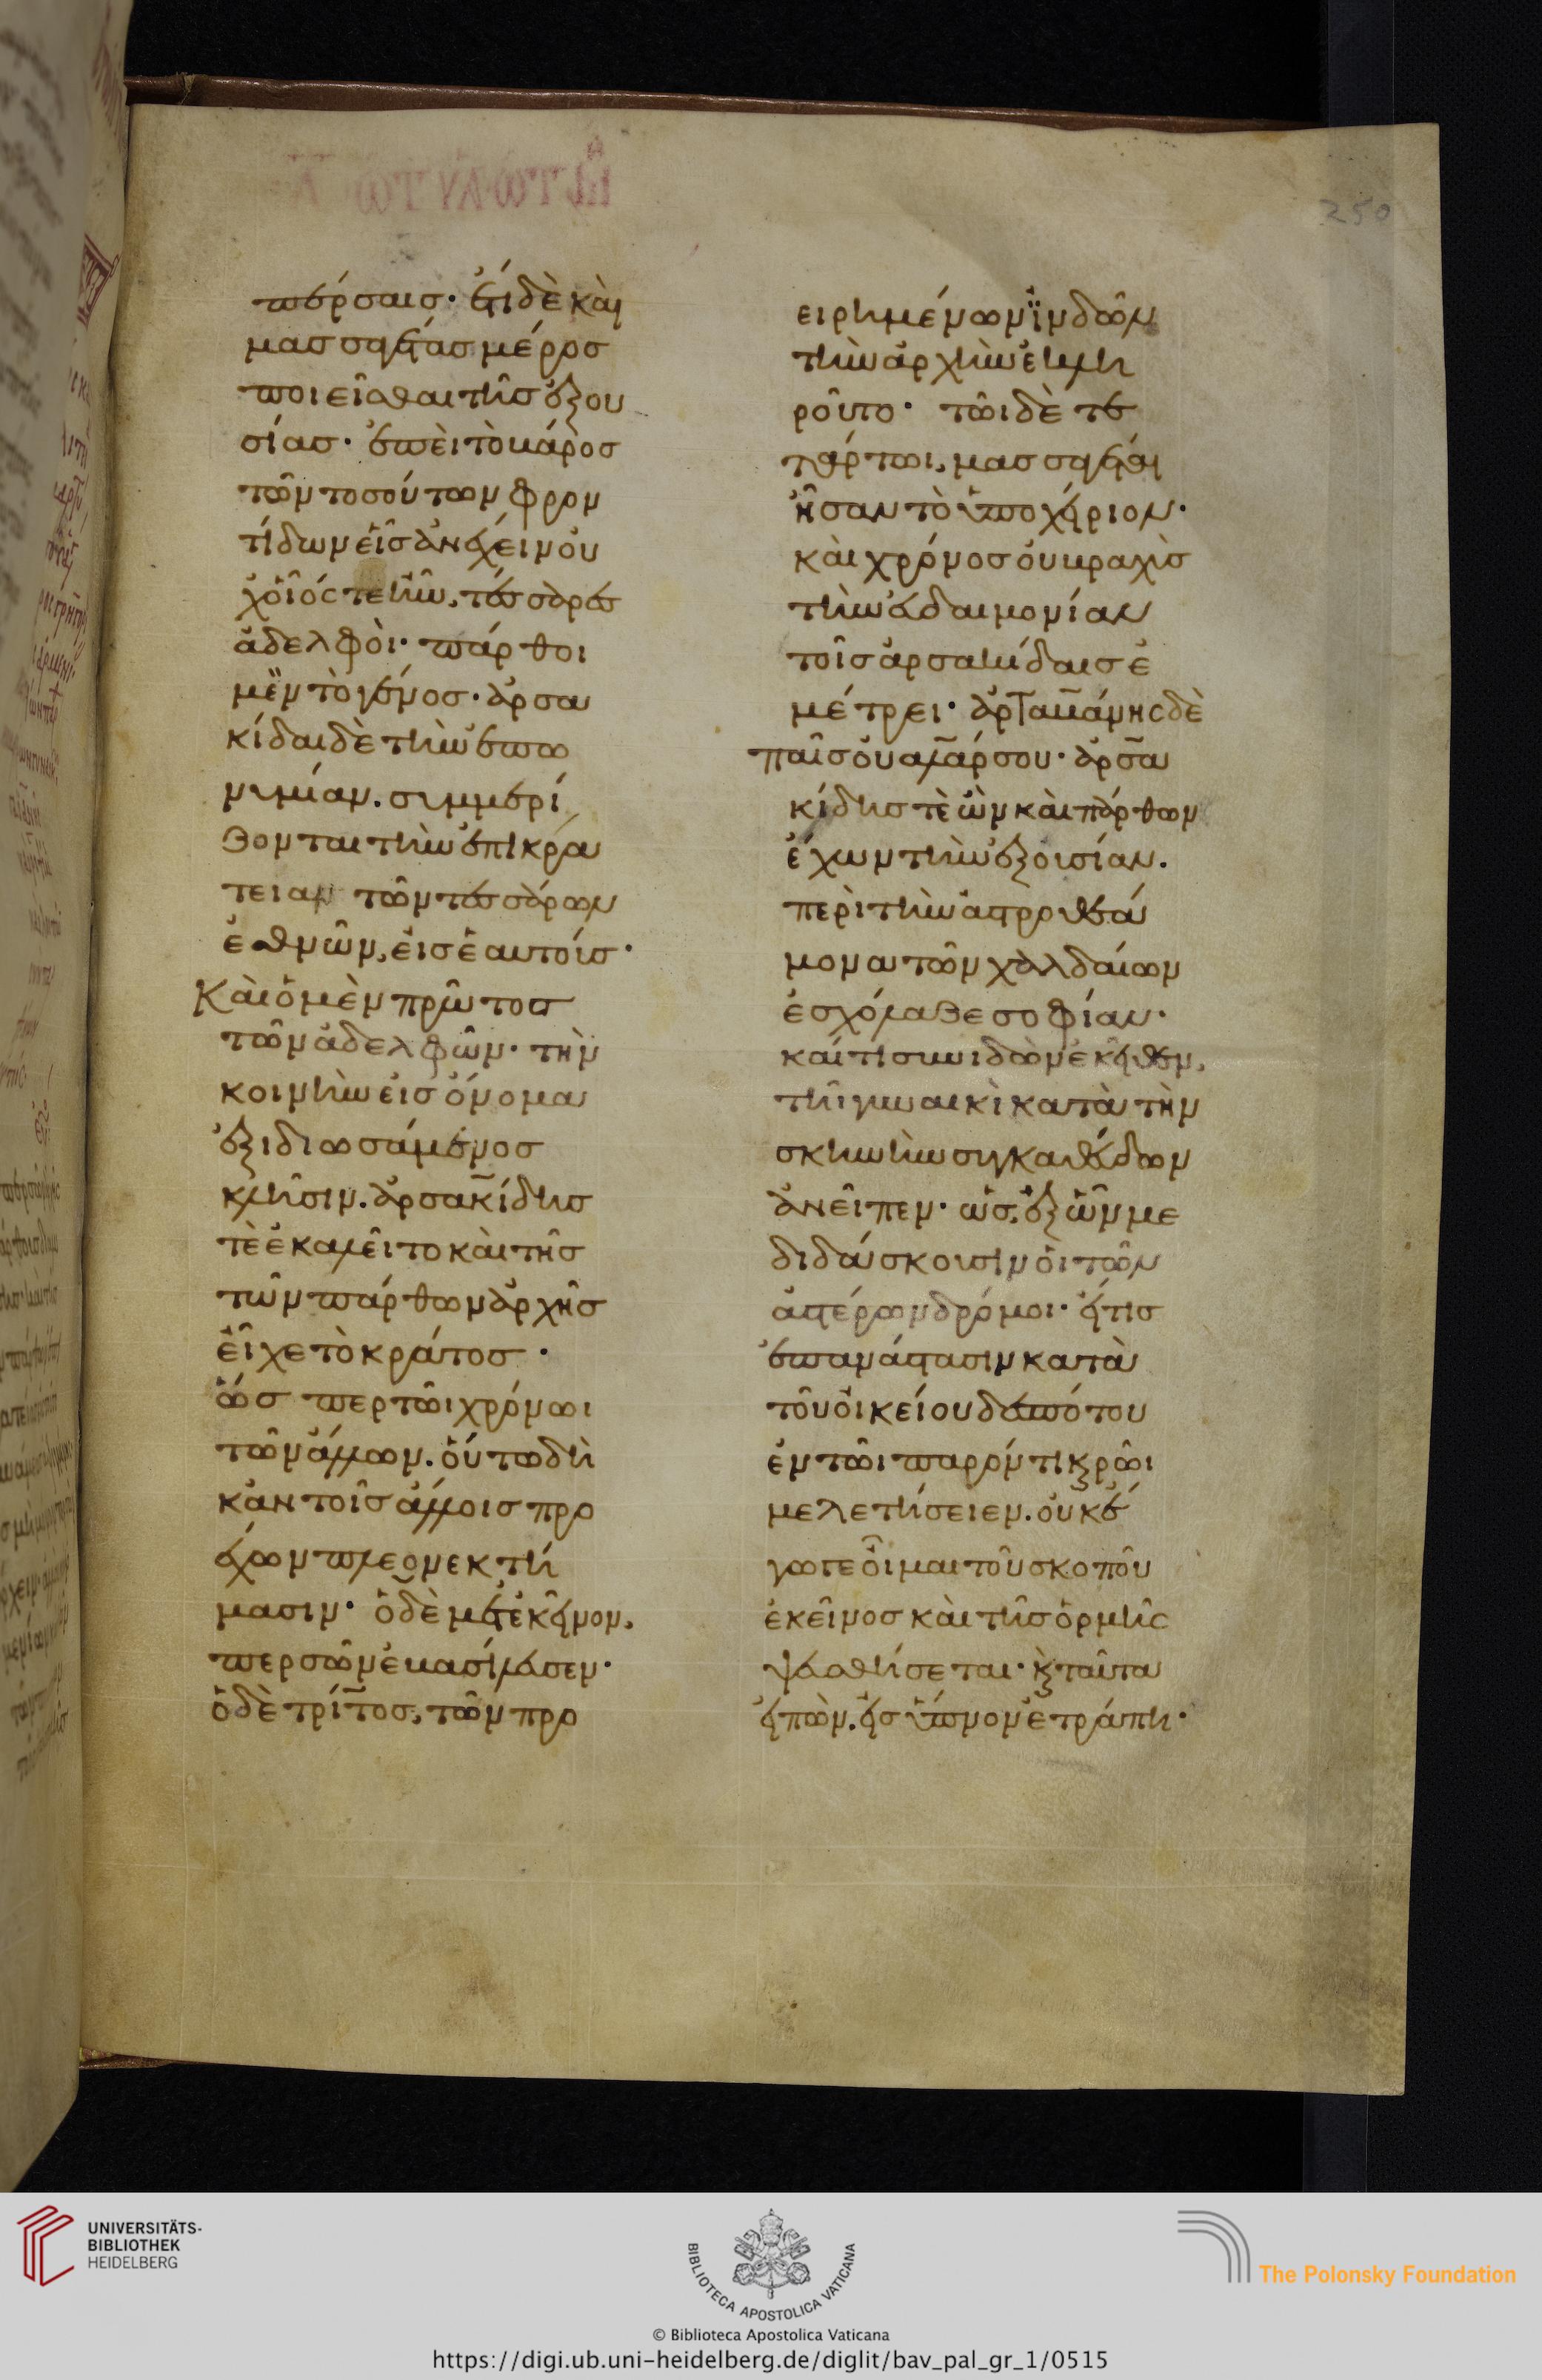 250
πέρσαις· ἔτι δὲ καὶ
μασσαγέτας μέρος
ποιεῖσθαι τῆς ἐξου
σίας· ἐπεὶ τὸ βάρος
τῶν τοσούτων φρον
τίδων εἷς ἀνέχειν οὐ
χ οἷός τε ἦν, τέσσαρες
ἀδελφοὶ· πάρθοι
μὲν τὸ γένος· ἀρσα
κίδαι δὲ τὴν ἐπω
νυμίαν. συμμερί
ζονται τὴν ἐπικρά
τειαν τῶν τεσσάρων
ἐθνῶν, εἰς ἑαυτοὺς·
Καὶ ὁ μὲν πρῶτος
τῶν ἀδελφῶν· τὴν
κοινὴν εἰς ὄνομα
ἐξιδιωσάμενος
κλῆσιν. ἀρσακίδης
τὲ ἐκαλεῖτο καὶ τῆς
τῶν πάρθων ἀρχῆς
εἶχε τὸ κράτος·
ὥσπερ τῶι χρόνωι
τῶν ἄλλων. οὕτω δὴ
κἀν τοῖς ἄλλοις προ
έχων πλεονεκτή
μασιν· ὁ δὲ μετ' ἐκεῖνον,
περσῶν ἐβασίλευσεν·
ὁ δὲ τρίτος, τῶν προ
ειρημένων ἰνδῶν
τὴν ἀρχὴν ἐκλη
ροῦτο· τῶι δὲ τε
τάρτωι, μασσαγέται
ἦσαν τὸ ὑποχείριον·
καὶ χρόνος οὐ βραχὺς
τὴν εὐδαιμονίαν
τοῖς ἀρσακίδαις ἐ
μέτρει· ἀρταβάνης δὲ
παῖς οὐαλάρσου· ἀρσα
κίδης τὲ ὢν καὶ πάρθων
ἔχων τὴν ἐξουσίαν.
περὶ τὴν ἀστροθεά
μονα τῶν χαλδαίων
ἐσχόλαζε σοφίαν·
καί τισιν ιδὼν ἐκεῖθεν,
τῆι γυναικὶ κατὰ τὴν
σκηνὴν συγκαθεύδων
ἀνεῖπεν· ὡς, ἐξ ὧν με
διδάσκουσιν οἱ τῶν
ἀστέρων δρόμοι· εἴ τις
ἐπανάστασιν κατὰ
τοῦ οἰκείου δεσπότου
ἐν τῶι παρόντι καιρῶι
μελετήσειεν. οὐκ ἔ
γωγε οἶμαι τοῦ σκοποῦ
ἐκεῖνος καὶ τῆς ὁρμῆς
ψευσθήσεται· καὶ ταῦτα
εἰπὼν. εἰς ὕπνον ἐτράπη·
UNIVERSITÄTS-
BIBLIOTHEK
HEIDELBERG
BIBLIOTECA APOSTOLICA VATICANA
The Polonsky Foundation
© Biblioteca Apostolica Vaticana
https://digi.ub.uni-heidelberg.de/diglit/bav_pal_gr_1/0515